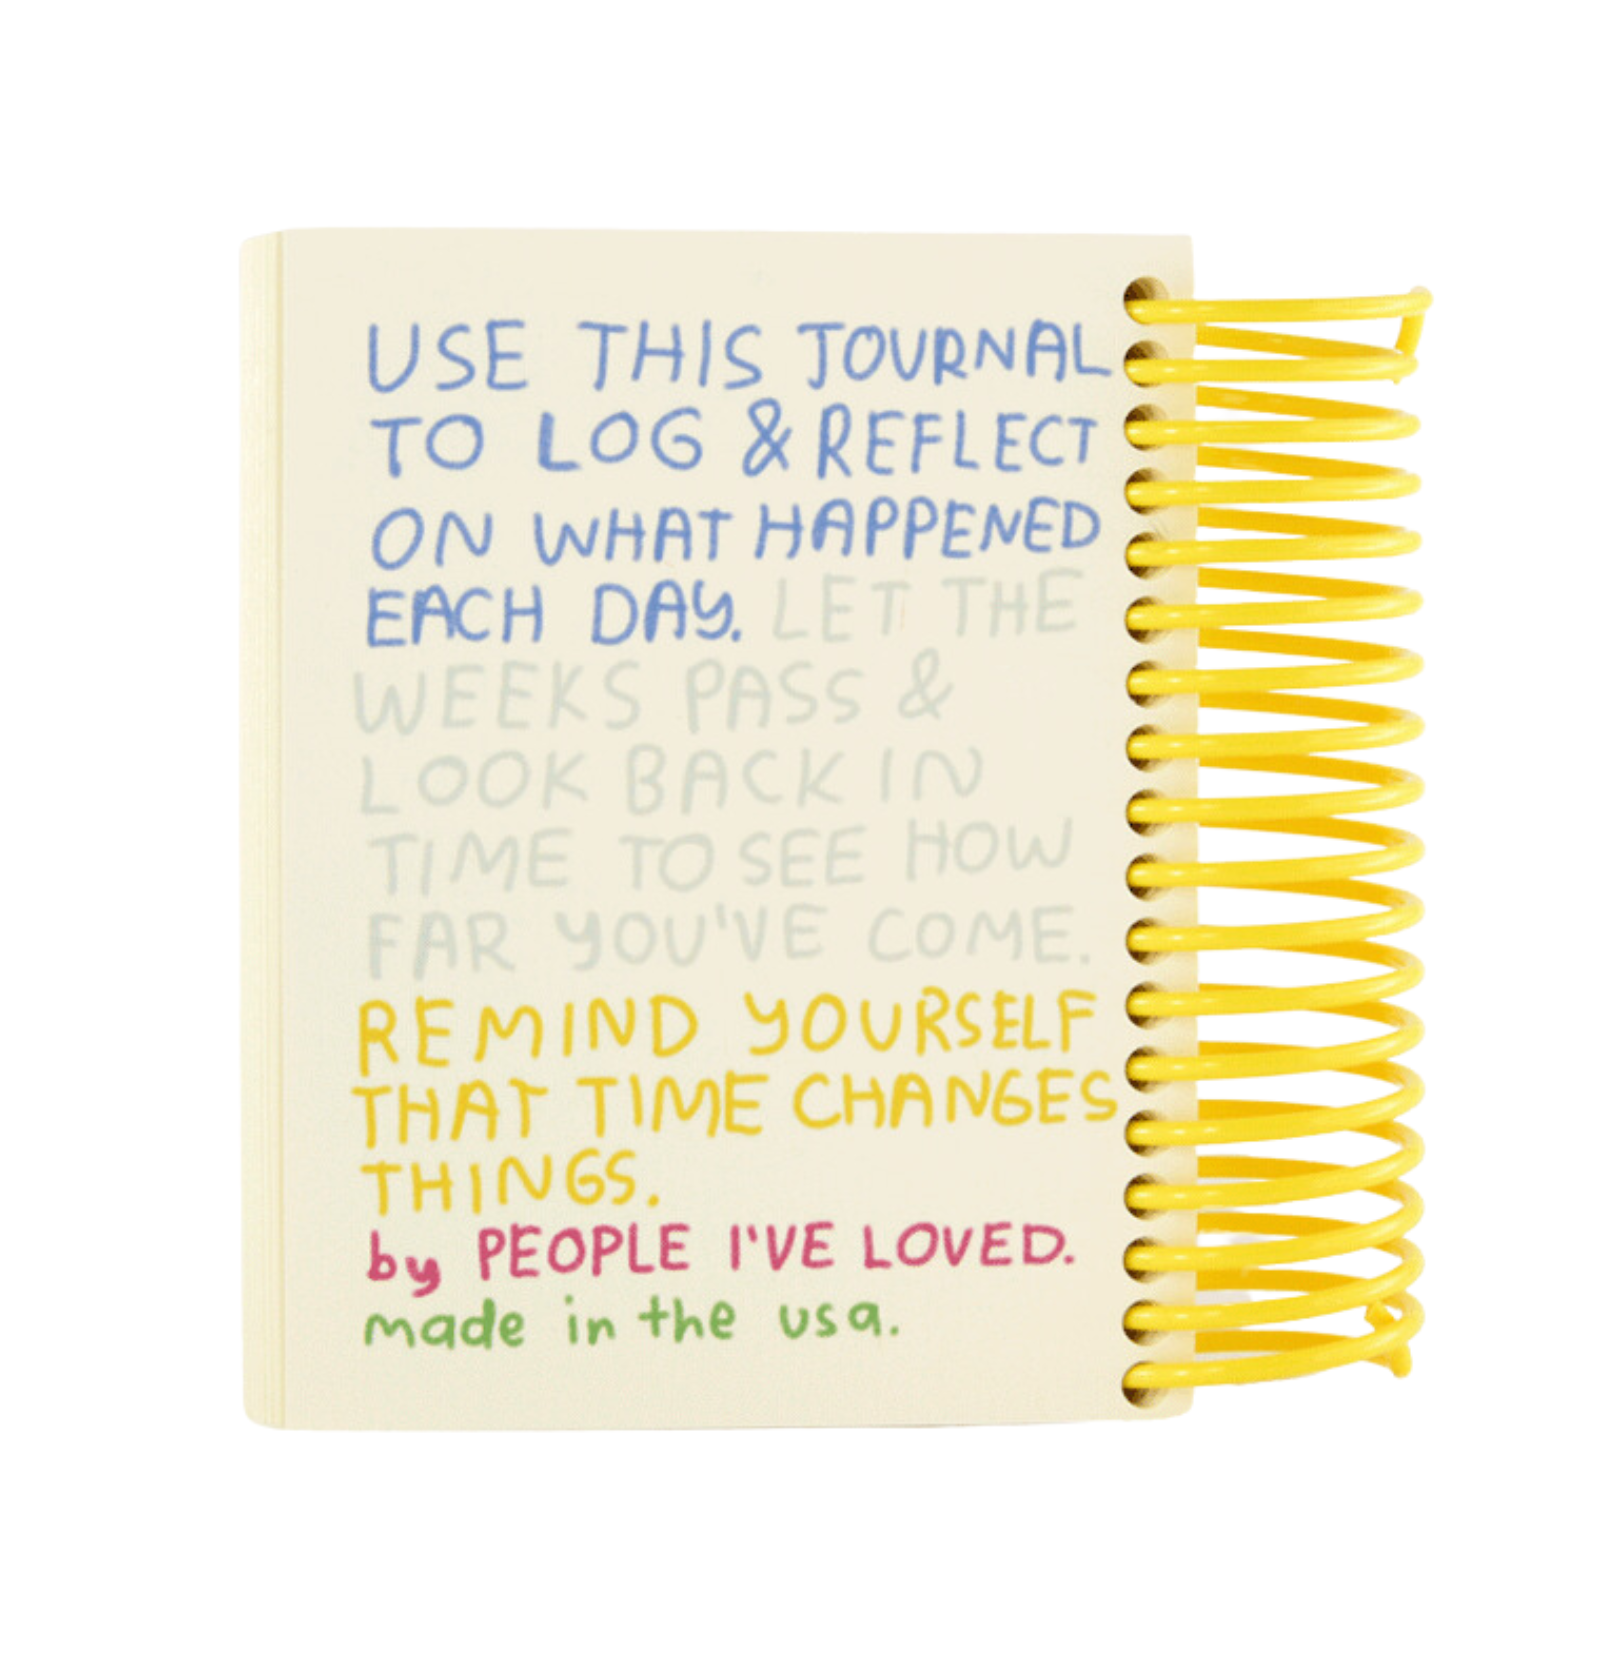 USE THIS JOURNAL
TO LOG & REFLECT
ON WHAT HAPPENED
EACH DAY. LET THE
WEEKS PASS &
LOOK BACK IN
TIME TO SEE HOW
FAR YOU'VE COME.
REMIND YOURSELF
THAT TIME CHANGES
THINGS.
by PEOPLE I'VE LOVED.
made in the usa.